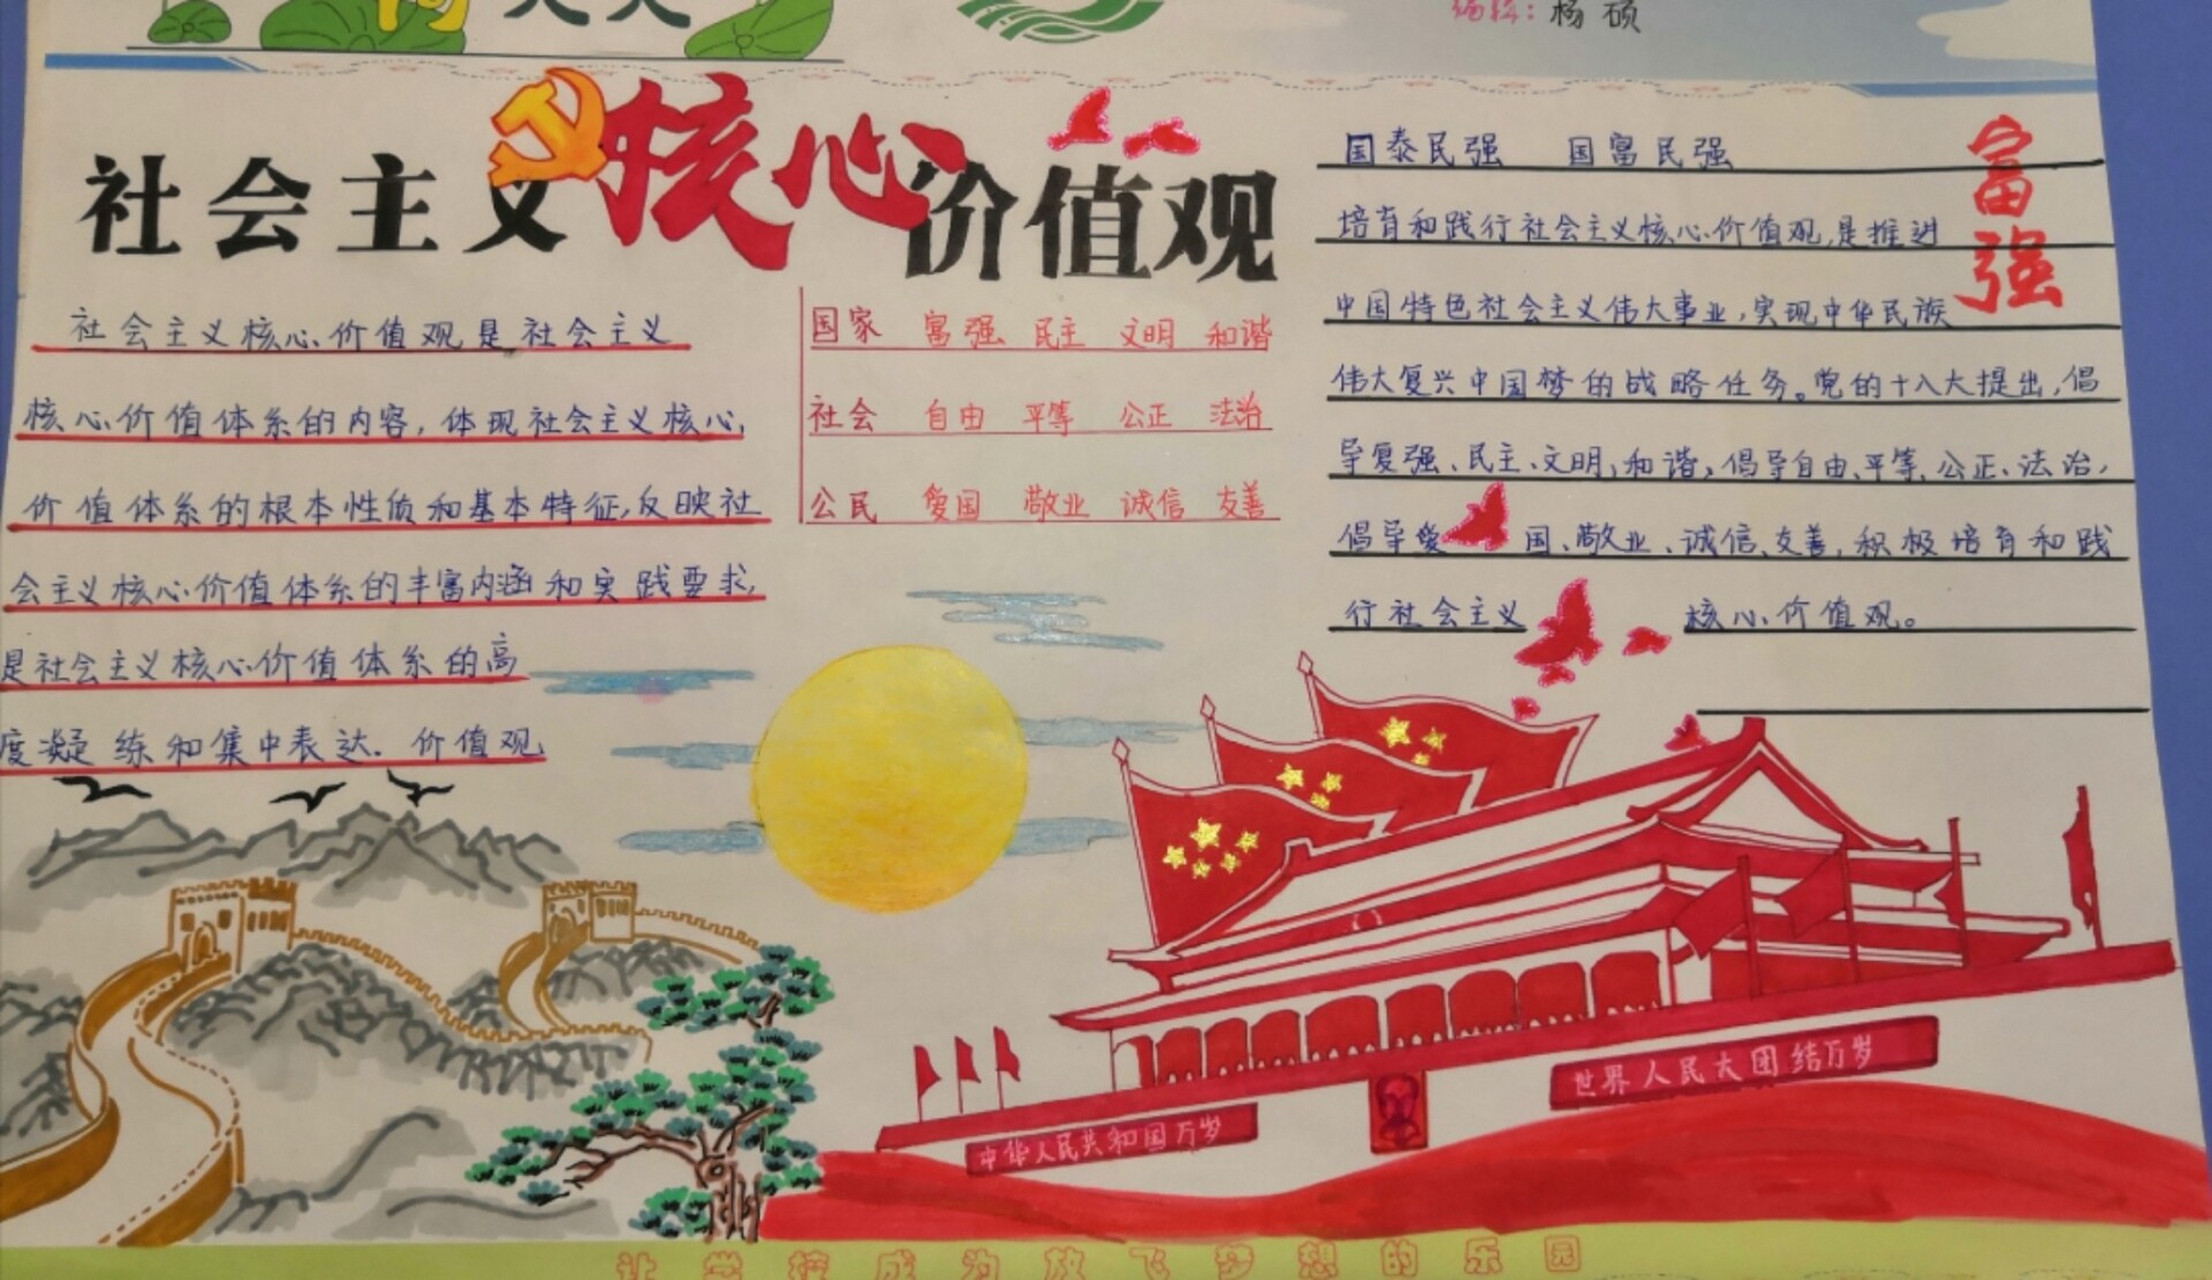 编辑：杨硕
社会主义核心价值观
社会主义核心价值观是社会主义
核心价值体系的内容，体现社会主义核心
价值体系的根本性质和基本特征，反映社
会主义核心价值体系的丰富内涵和实践要求，
是社会主义核心价值体系的高
度凝练和集中表达．价值观
国家 富强 民主 文明 和谐
社会 自由 平等 公正 法治
公民 爱国 敬业 诚信 友善
富强
国泰民强 国富民强
培育和践行社会主义核心价值观，是推进
中国特色社会主义伟大事业，实现中华民族
伟大复兴中国梦的战略任务。党的十八大提出，倡
导复强、民主、文明、和谐，倡导自由、平等、公正、法治，
倡导爱国、敬业、诚信、友善，积极培育和践
行社会主义核心价值观。
中华人民共和国万岁
世界人民大团结万岁
让学校成为放飞梦想的乐园